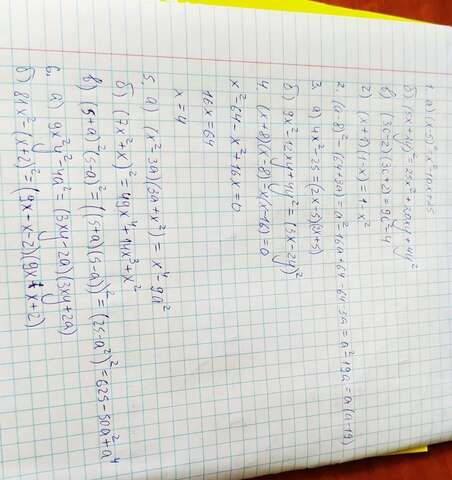 1. а) (x-5)²=x²-10x+25
б) (5x+4y)²=25x²+20xy+4y²
в) (3c-2)(3c+2)=9c²-4
г) (x+1)(1-x)=1-x²
2. (a-8)²-(64+3a)=a²-16a+64-64-3a=a²-19a=a(a-19)
3. а) 4x²-25=(2x-5)(2+5)
б) 9x²-12xy+4y²=(3x-2y)²
4. (x+8)(x-8)-x(x-16)=0
x²-64-x²+16x=0
16x=64
x=4
5. а) (x²-3a)(3a+x²)=x⁴-9a²
б) (7x²+x)²=49x⁴+14x³+x²
в) (5+a)²(5-a)²=((5+a)(5-a))²=(25-a²)²=625-50a²+a⁴
6. а) 9x²y²-4a²=(3xy-2a)(3xy+2a)
б) 81x²-(x+2)²=(9x+x-2)(9x+x+2)